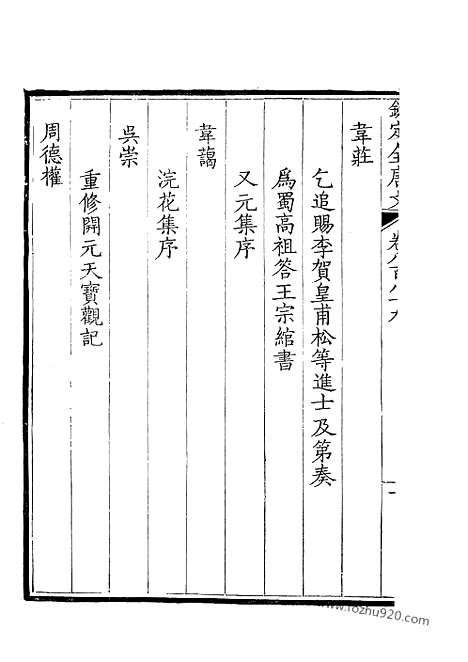 欽定全唐文 卷八百八十九
韋莊
乞追賜李賀皇甫松等進士及第奏
爲蜀高祖答王宗綰書
又元集序
韋藹
浣花集序
吳崇
重修開元天寶觀記
周德權
www.fozhu920.com